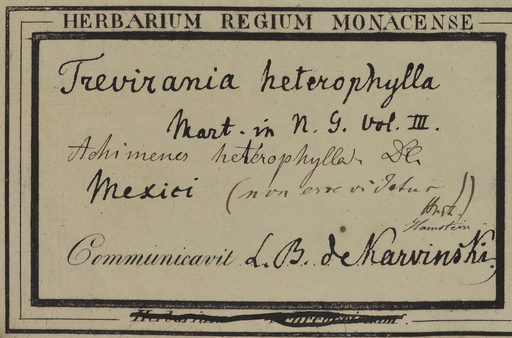 HERBARIUM REGIUM MONACENSE
Trevirania heterophylla
Mart. in N. G. Vol. III.
Achimenes heterophylla. DC.
Mexici (non esse videtur
Hanstein
Communicavit L. B. de Karvinski.
Herbarium